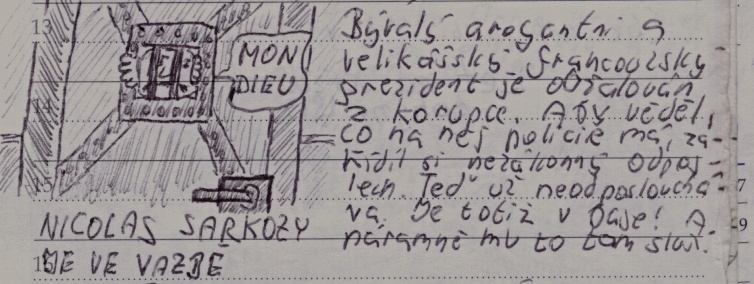 13
MON
DIEU
14
15
NICOLAS SARKOZY
JE VE VAZBĚ
Bývalý arogantní a
velikášský francouzský
prezident je obžalován
z korupce. Aby věděl,
co na něj policie má, za-
řídil si nezákonný odpos-
lech. Teď už neodposlouchá-
vá. Je totiž v base! A
náramně mu to tam sluší.
7
9